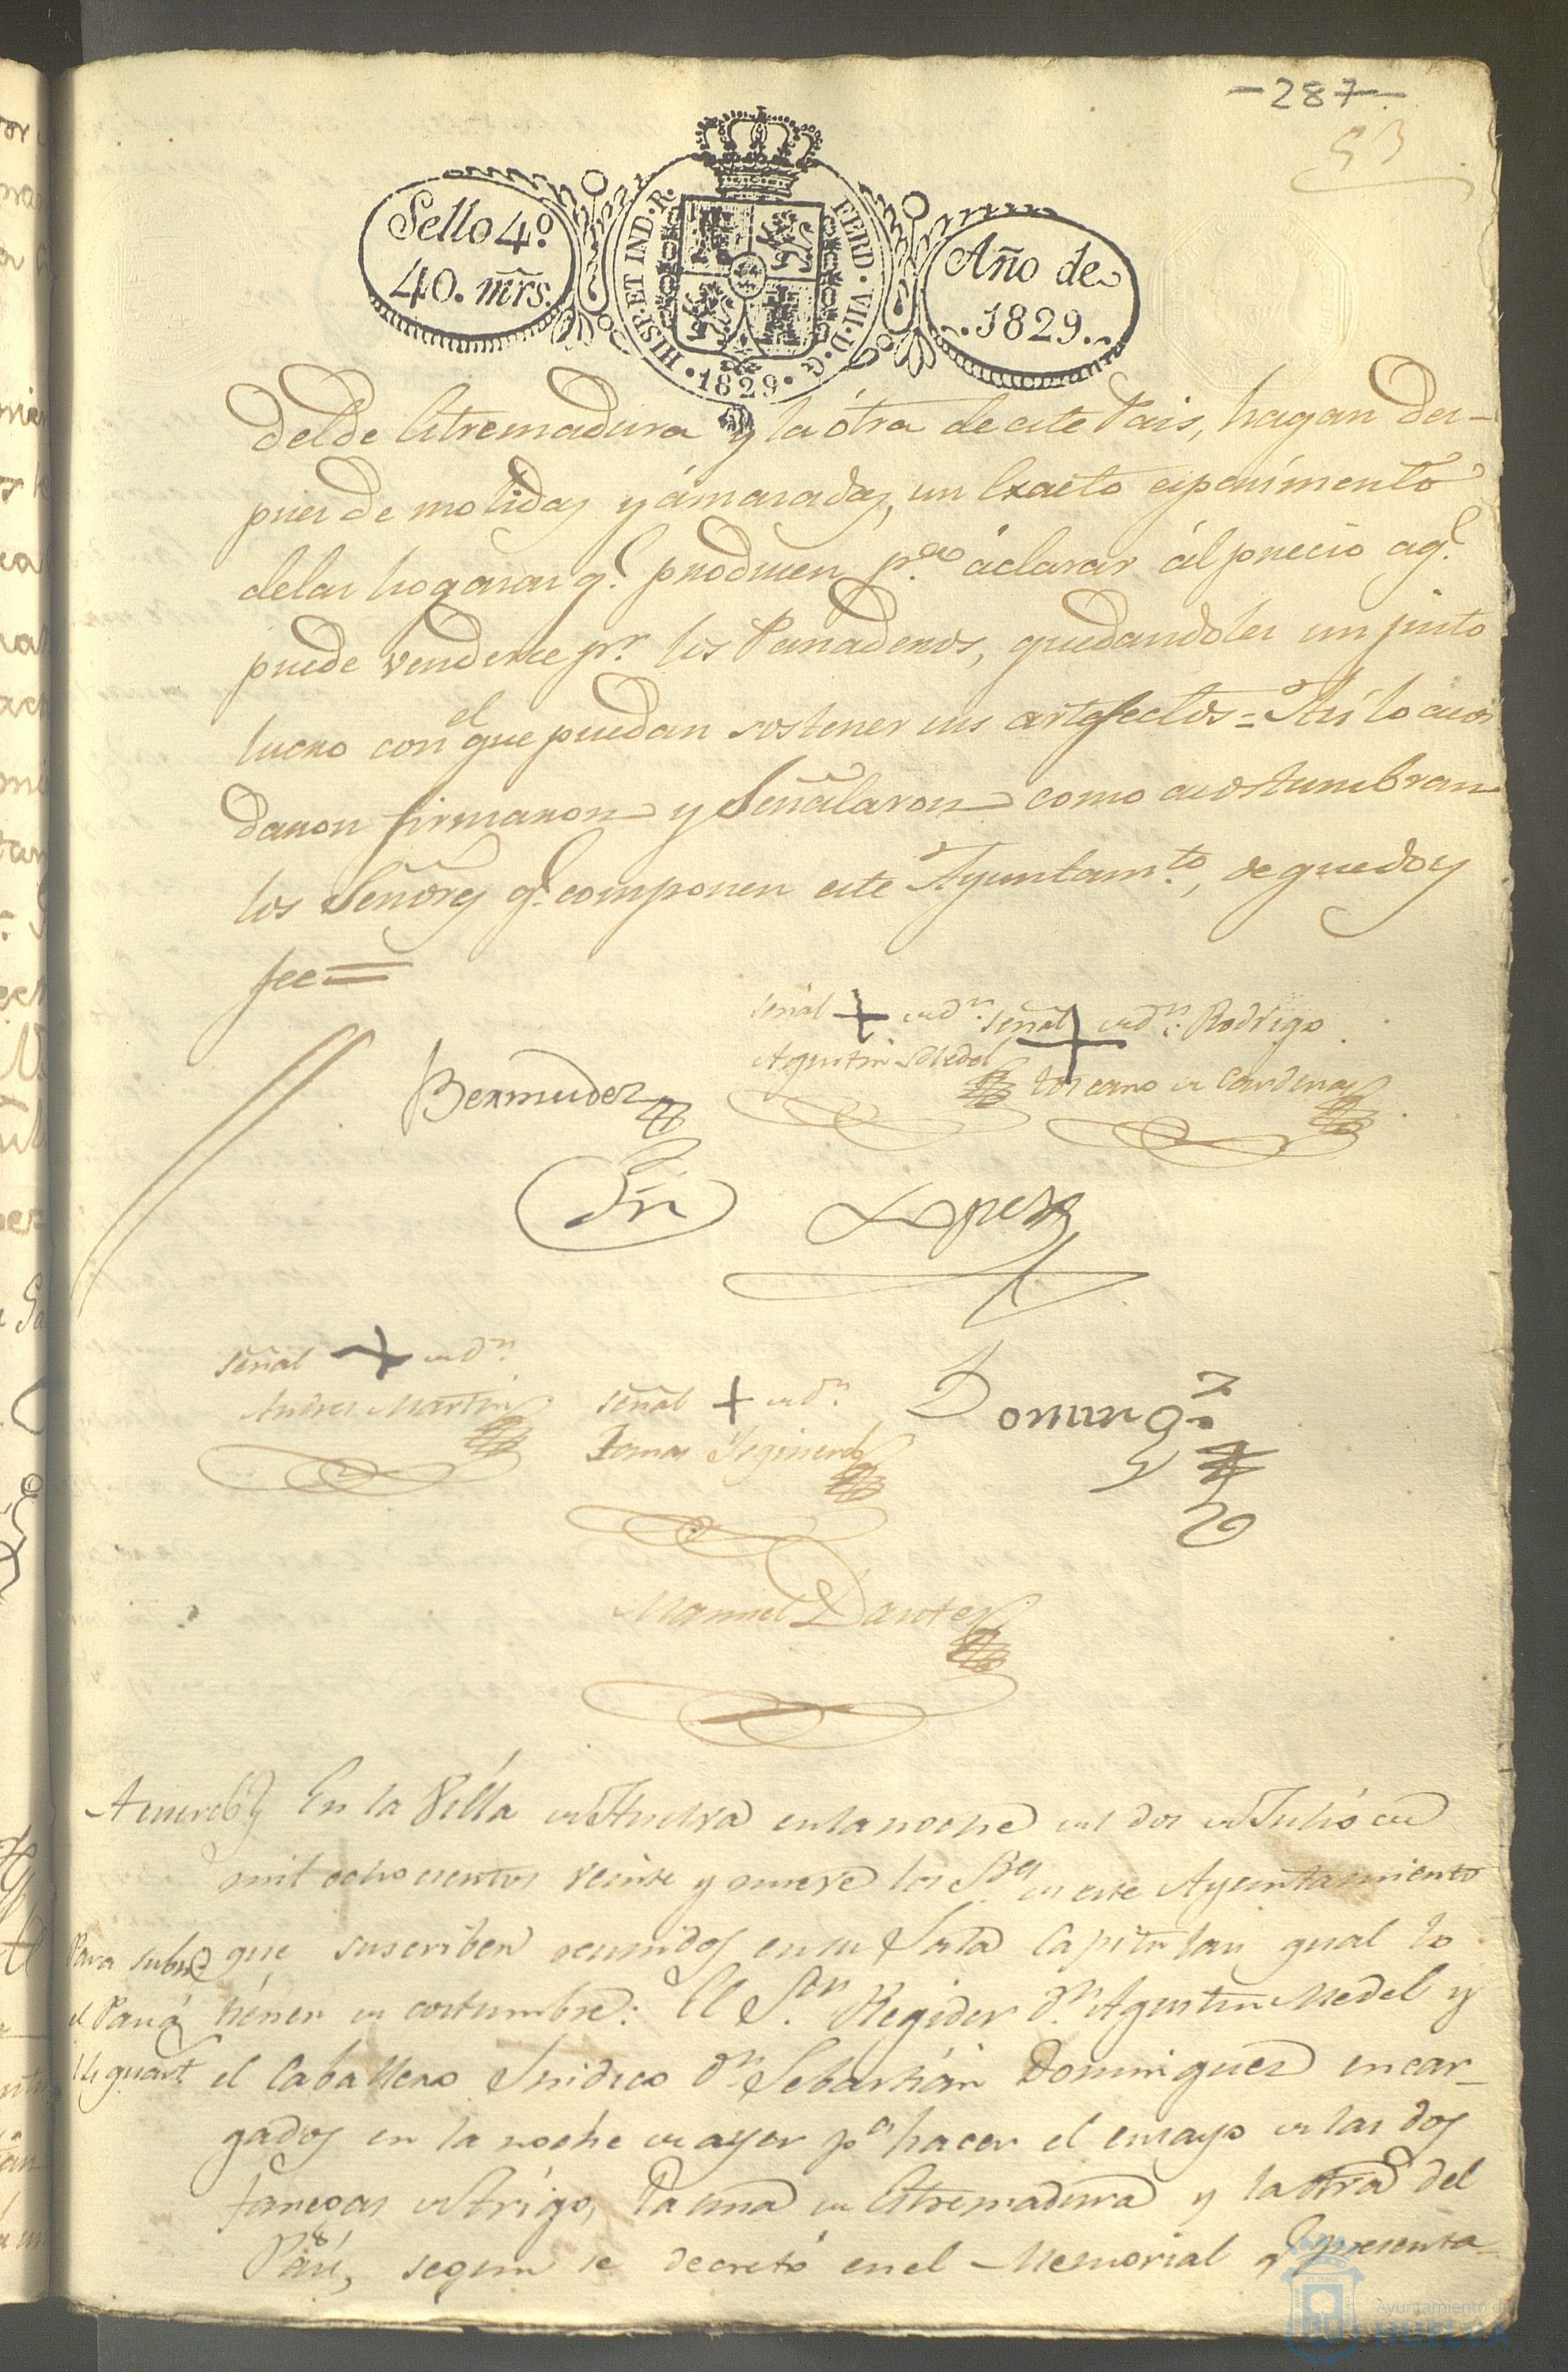 -287-
53
Sello 4º.
40. mrs.
HISP. ET IND. R.
FERD. VII. D. G.
1829
Año de
1829
delde Estremadura y la ótra de este Pais, hagan des-
pues de molidas y ámasadas, un Exacto esperimento
de las hogasas q.e producen p.a áclarar ál precio aq.e
puede venderse p.r los Panaderos, quedandoles un justo
lucro con el que puedan sostener sus artefectos = Así lo acor
daron firmaron y Señalaron como acostumbran
los Señores q.e componen este Ayuntam.to, de que doy
fee =
Señal + de d.n
Agustin Medel
Señal + de d.n Rodrigo
Toscano de Cardenas
Bermudez
Lopez
Señal + de d.n
Andres Martin
Señal + de d.n
Tomas
Doming.z
Manuel
Acuerdo En la Villa de Huelva en la noche del dos de Julio de
mil ochocientos veinte y nueve los S.res de este Ayuntamiento
Para subir
que suscriben reunidos en su Sala Capitular qual lo
el Pan á
tienen de costumbre: El S.or Regidor d.n Agustin Medel y
quart.
el Caballero Sindico d.n Sebastián Dominguez encar-
gados en la noche de ayer p.a hacer el ensayo de las dos
fanegas de trigo, la una de Estremadura y la otra del
Pais, segun se decretó en el Memorial q.e presenta-
Ayuntamiento de
HUELVA